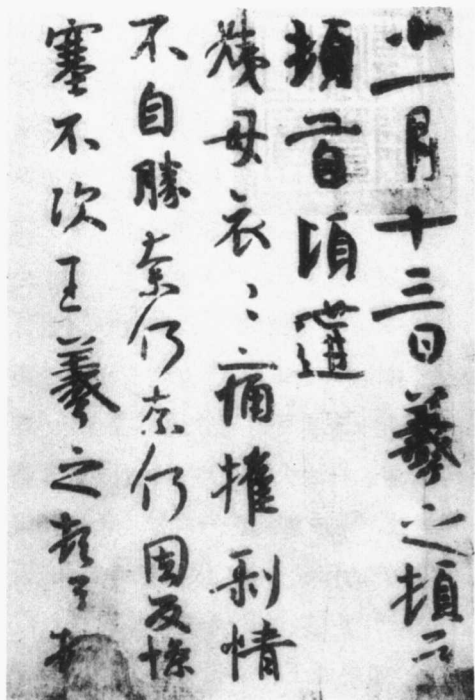 十一月十三日羲之頓首
頓首頃遘
姨母哀〻痛摧剝情
不自勝奈何奈何因反慘
塞不次王羲之頓首頓